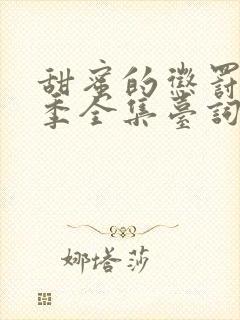 甜蜜的懲罰
季全集臺詞
娜塔莎